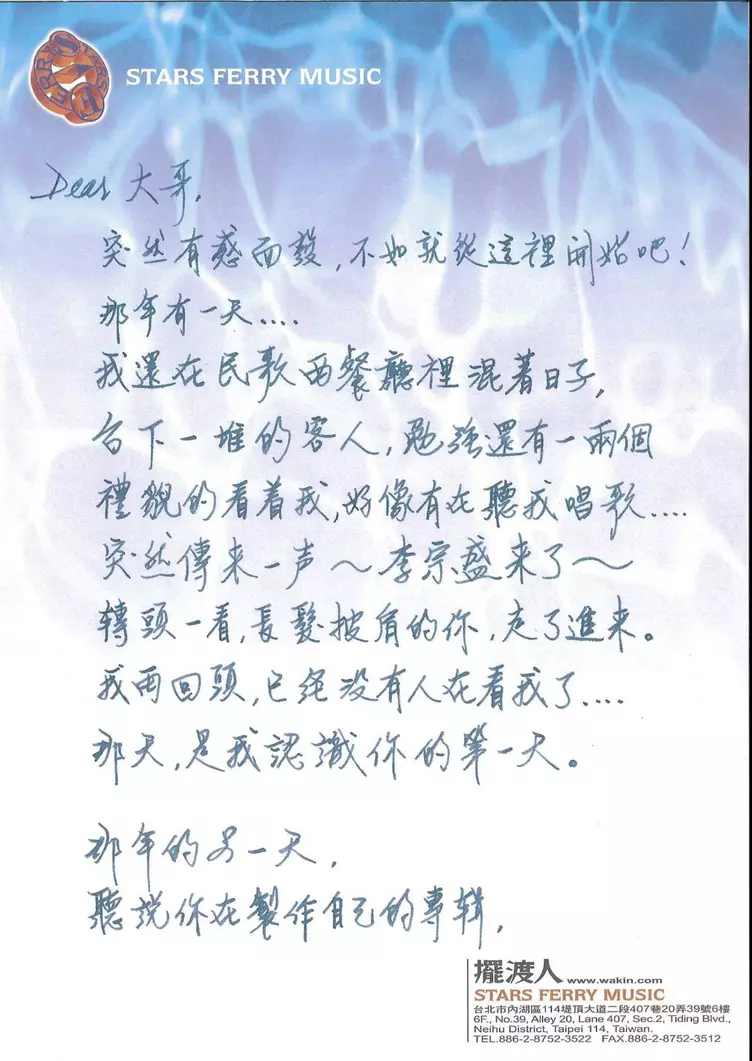 STARS FERRY MUSIC
Dear 大哥,
突然有感而發,不如就從這裡開始吧!
那年有一天....
我還在民歌西餐廳裡混着日子,
台下一堆的客人,勉強還有一兩個
禮貌的看着我,好像有在聽我唱歌....
突然傳來一声～李宗盛来了～
轉頭一看,長髮披肩的你,走了進来。
我再回頭,已經没有人在看我了....
那天,是我認識你的第一天。
那年的另一天,
聽説你在製作自己的專辑,
擺渡人 www.wakin.com
STARS FERRY MUSIC
台北市內湖區114堤頂大道二段407巷20弄39號6樓
6F., No.39, Alley 20, Lane 407, Sec.2, Tiding Blvd.,
Neihu District, Taipei 114, Taiwan.
TEL.886-2-8752-3522 FAX.886-2-8752-3512